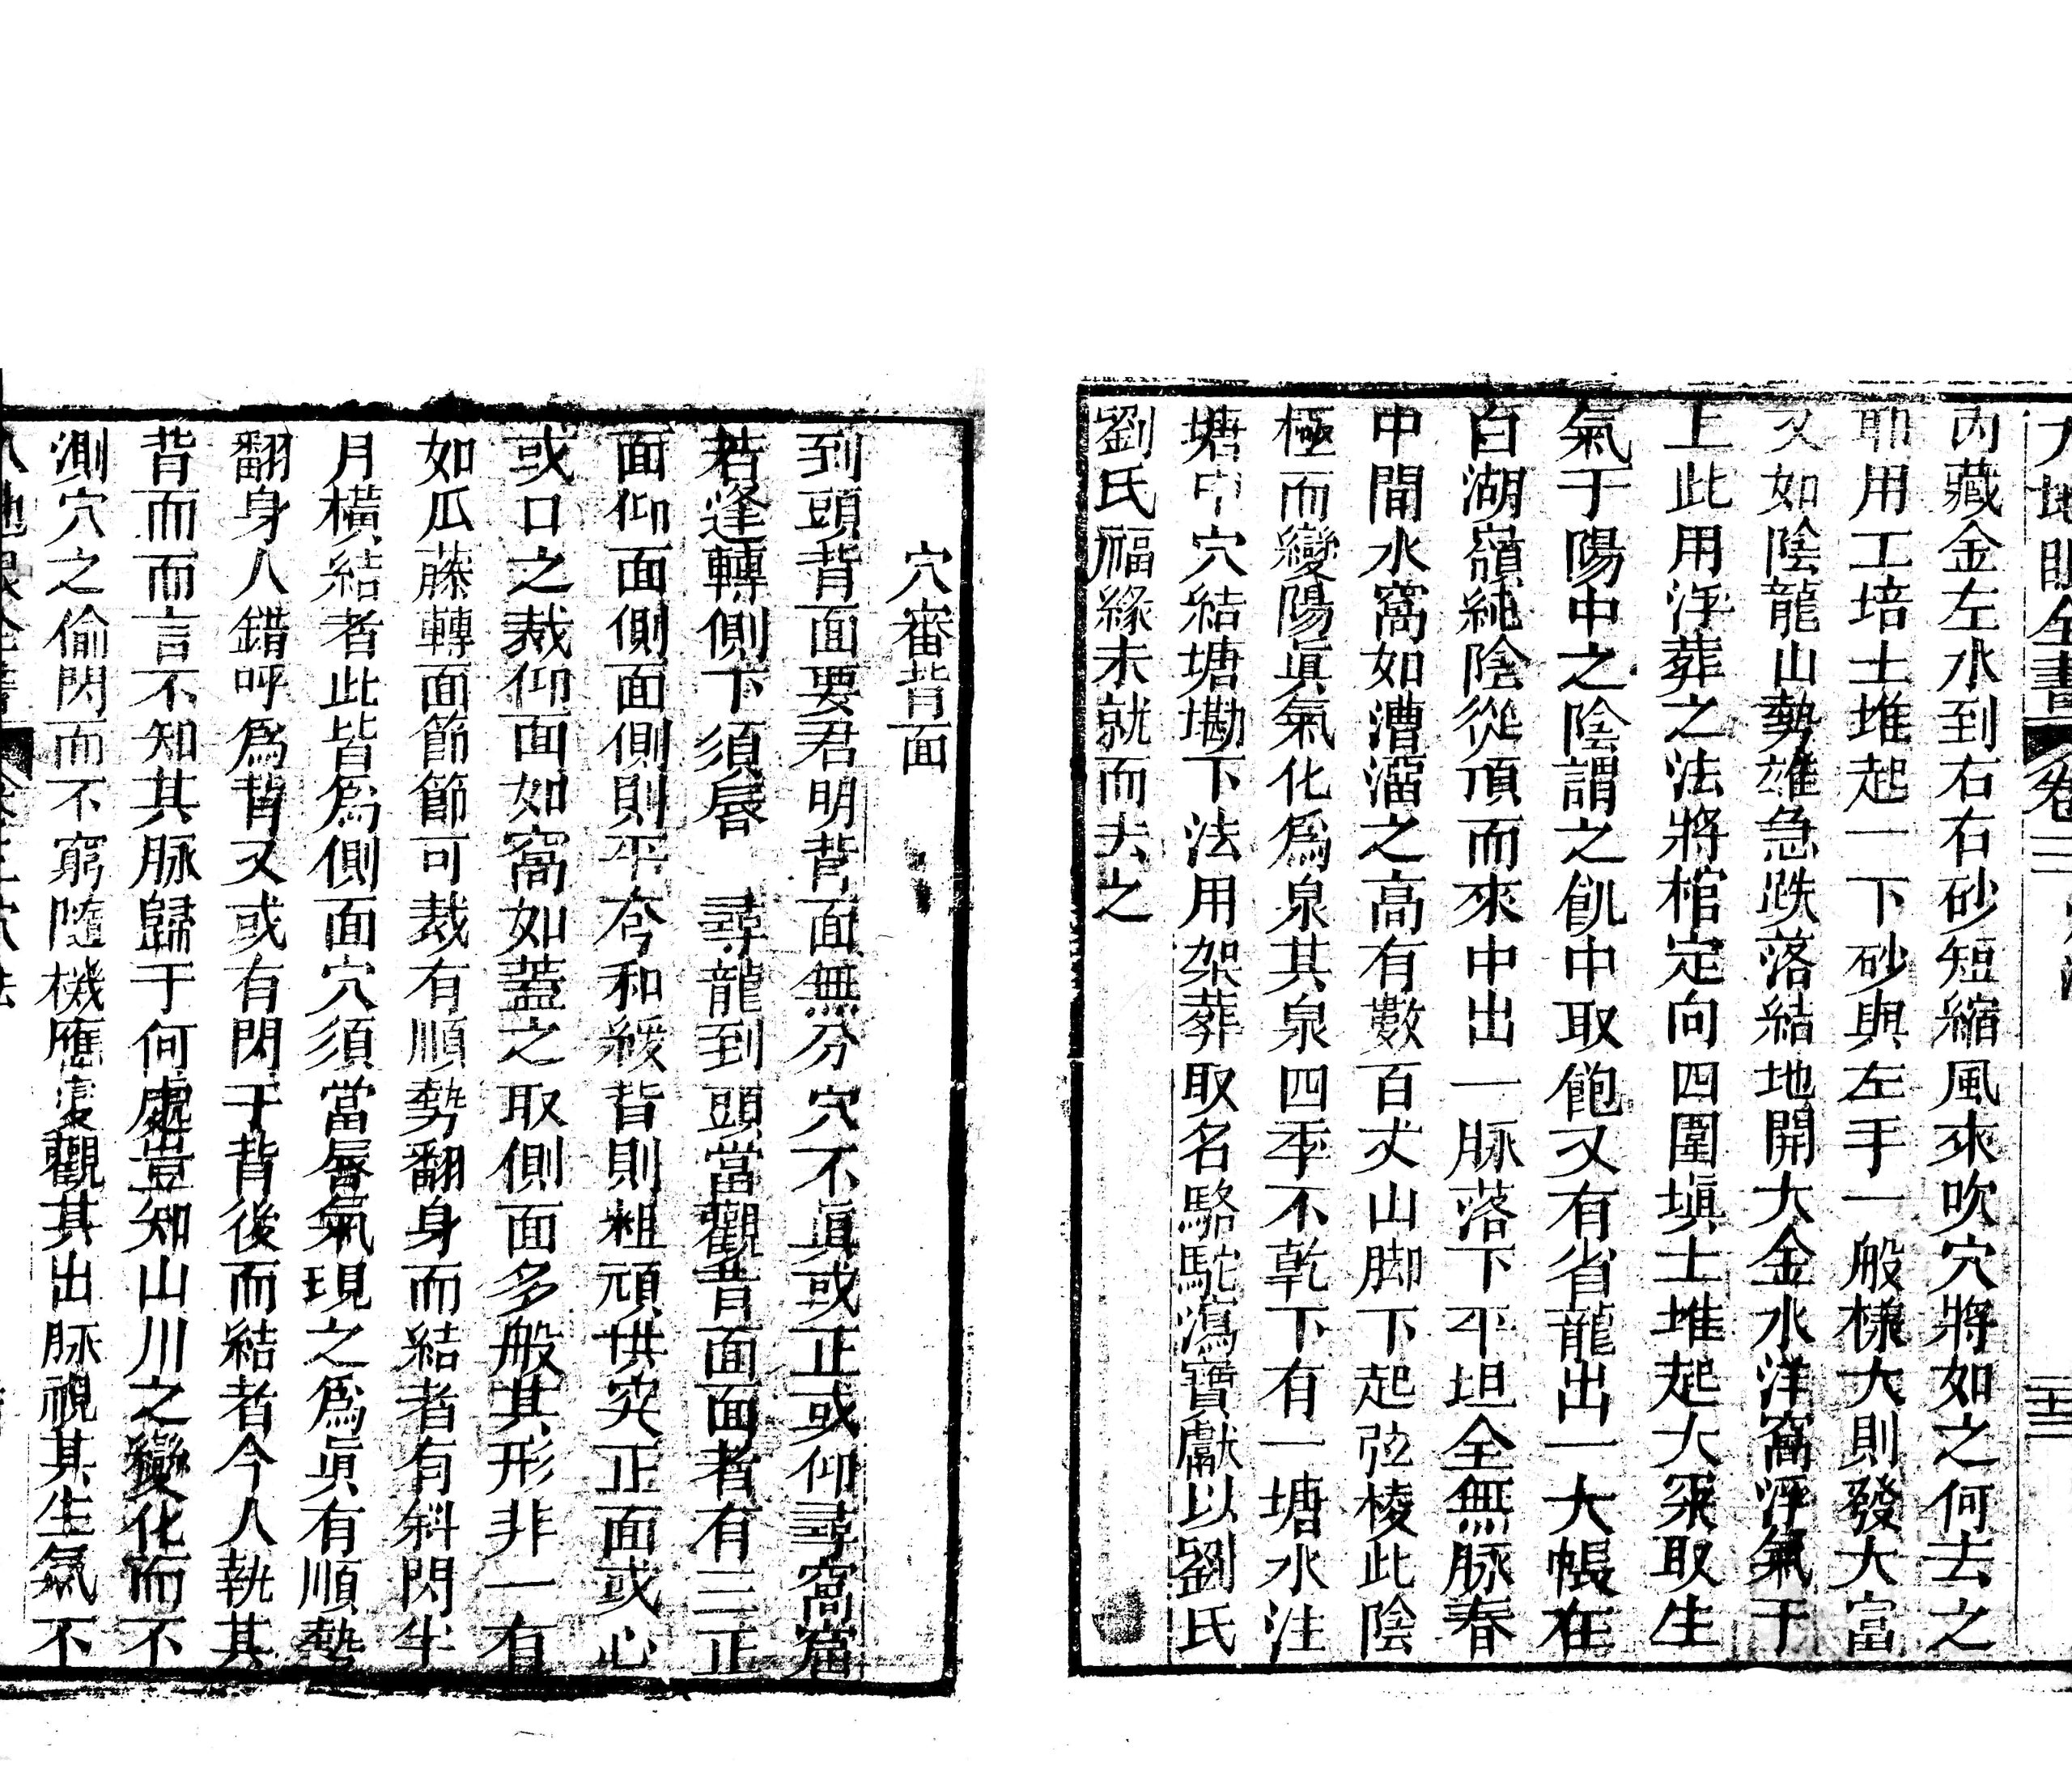 內藏金左水到右右砂短縮風來吹穴將如之何去之
耶用工培土堆起一下砂與左手一般樣大則發大富
又如陰龍山勢雄急跌落結地開大金水洋窩浮氣于
上此用浮葬之法將棺定向四圍塡土堆起大冢取生
氣于陽中之陰謂之飢中取飽又有省龍出一大帳在
白湖嶺純陰從頂而來中出一脉落下平坦全無脉春
中間水窩如漕溜之高有數百丈山脚下起弦棱此陰
極而變陽眞氣化爲泉其泉四季不乾下有一塘水注
塘中穴結塘墈下法用架葬取名駱駝瀉寶獻以劉氏
劉氏福緣未就而去之
穴審背面
到頭背面要君明背面無分穴不眞或正或仰尋窩窟
若逢轉側下須唇 尋龍到頭當觀背面面者有三正
面仰面側面側則平夸和緩背則粗頑拱突正面或心
或口之裁仰面如窩如蓋之取側面多般其形非一有
如瓜藤轉面節節可裁有順勢翻身而結者有斜閃牛
月橫結者此皆爲側面穴須當唇氣現之爲眞有順勢
翻身人錯呼爲背又或有閃于背後而結者今人執其
背而而言不知其脉歸于何處豈知山川之變化而不
測穴之偷閃而不窮隨機應變觀其出脉視其生氣不